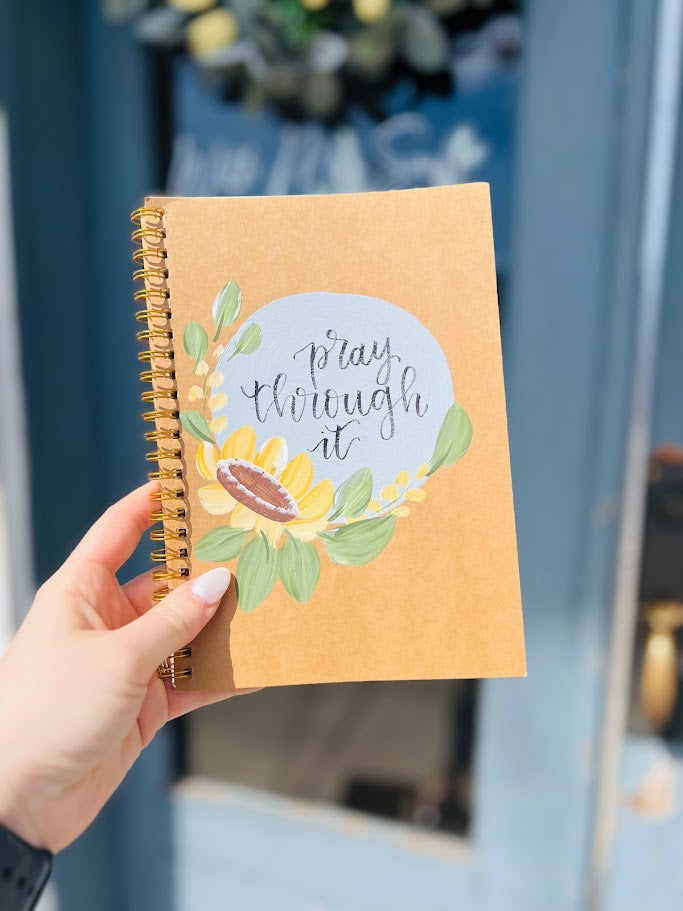 pray
through
it